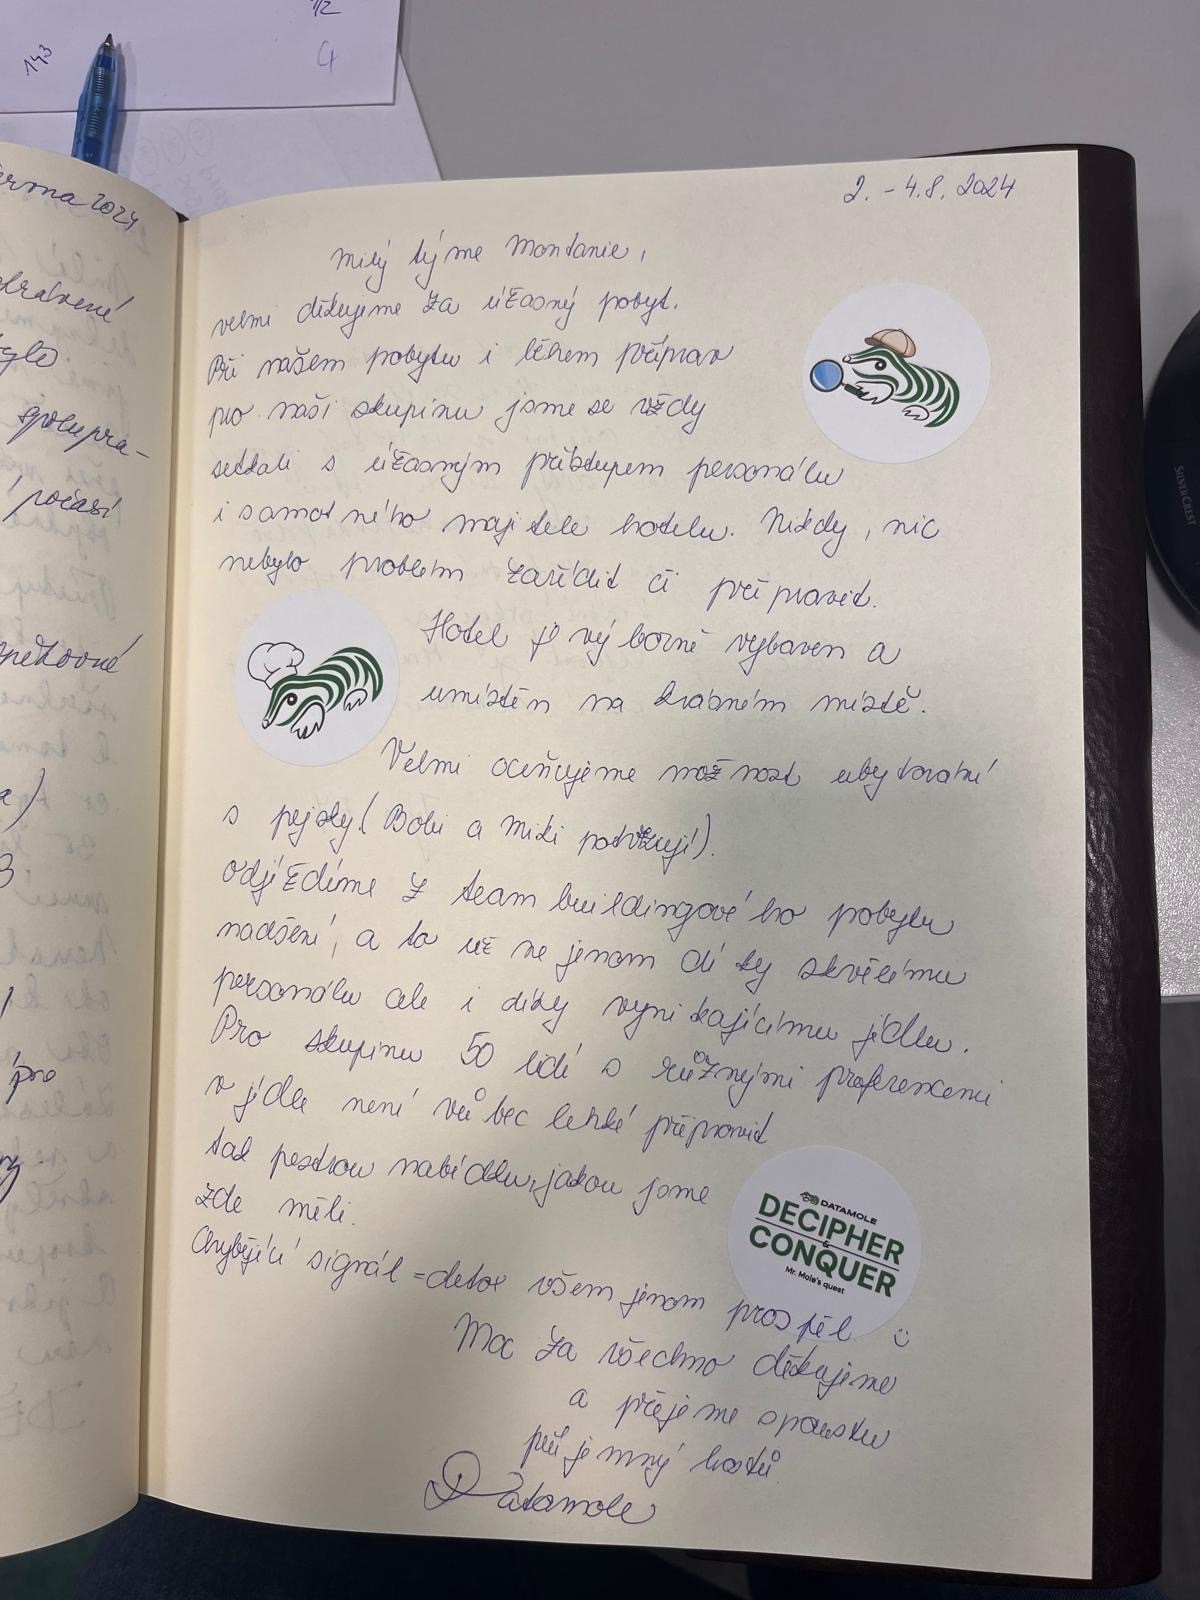 143
1/2
4
června 2024
spolupra-
počasí
a)
3
pro
2. - 4.8. 2024
Milý týme Montanie,
velmi děkujeme za úžasný pobyt.
Při našem pobytu i během příprav
pro naši skupinu jsme se vždy
setkali s úžasným přístupem personálu
i samotného majitele hotelu. Nikdy, nic
nebylo problém zařídit či připravit.
Hotel je výborně vybaven a
umístěn na krásném místě.
Velmi oceňujeme možnost ubytování
s pejsky (Bobi a Miki potvrzují).
Odjíždíme z teambuildingového pobytu
nadšení, a to už ne jenom díky skvělému
personálu ale i díky vynikajícímu jídlu.
Pro skupinu 50 lidí s různými preferencemi
v jídle není vůbec lehké připravit
tak pestrou nabídku, jakou jsme
zde měli.
Chybějící signál = detox všem jenom prospěl. :)
DATAMOLE
DECIPHER
&
CONQUER
Mr. Mole's quest
Moc za všechno děkujeme
a přejeme spoustu
příjemný hostů.
Datamole
SILVERCREST